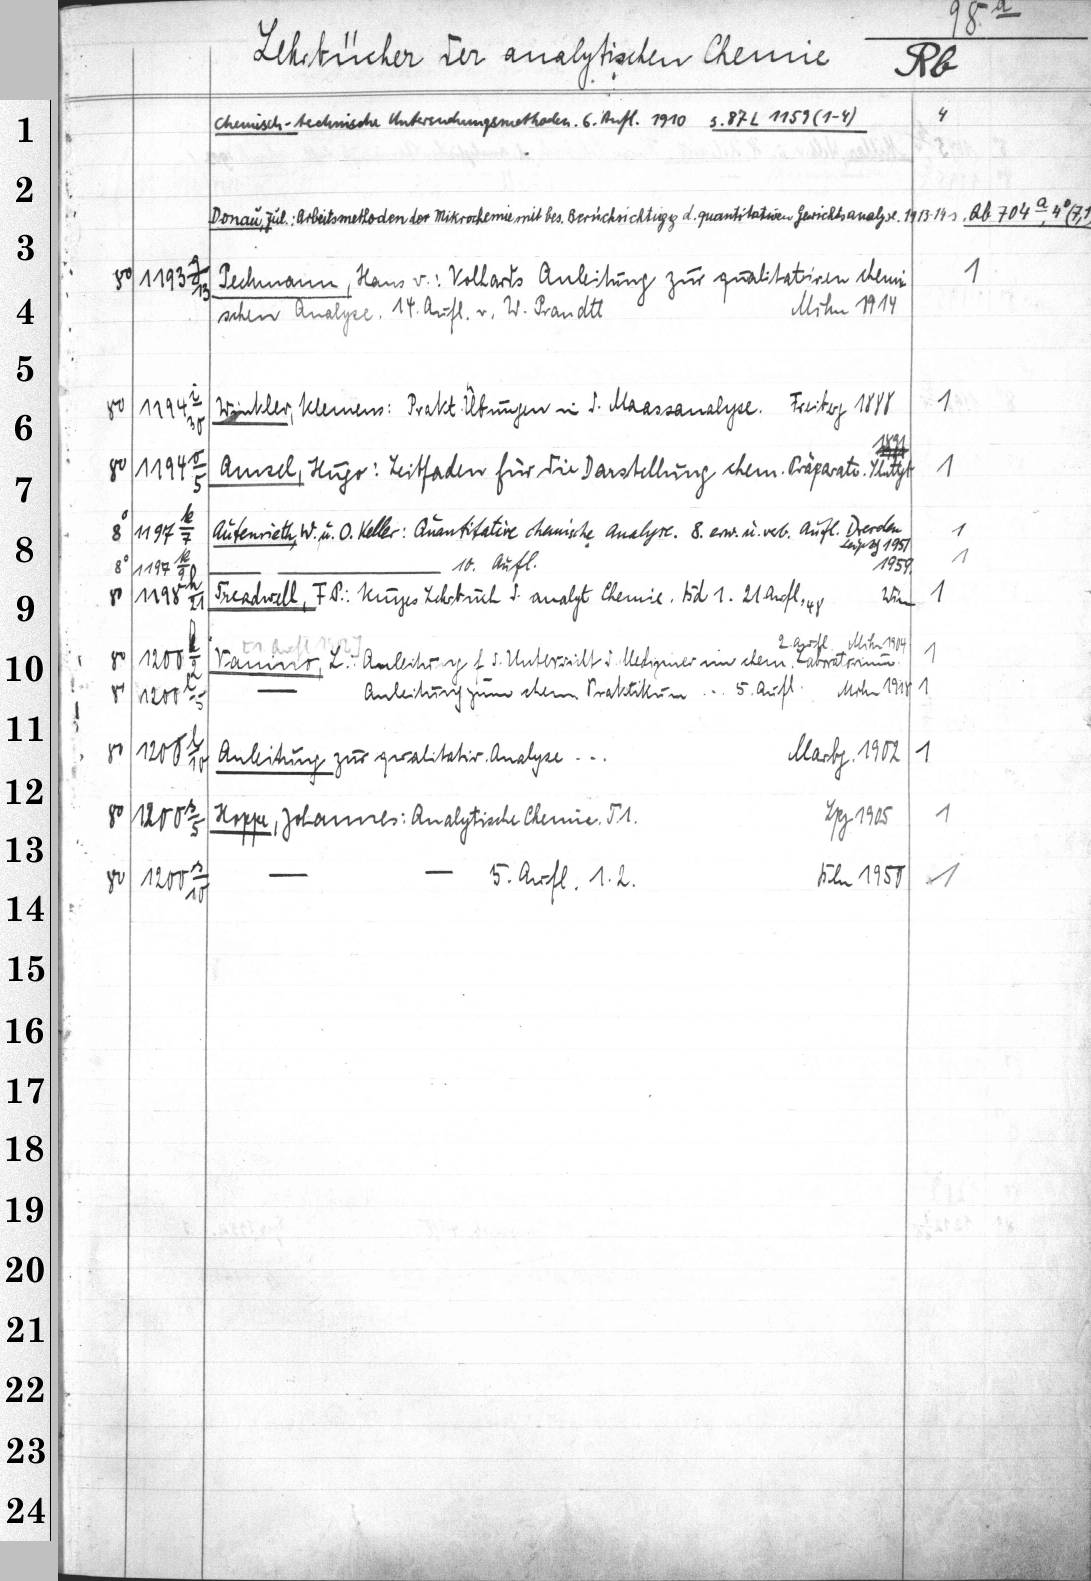 98 a
Lehrbücher der analytischen Chemie Rb
1 Chemisch-technische Untersuchungsmethoden. 6. Aufl. 1910 s. 87 L 1159 (1-4) 4
2
Donau, Jul.: Arbeitsmethoden der Mikrochemie mit bes. Berücksichtigg d. quantitativen Gewichtsanalyse. 1913-14 s. Ab 704 a, 4° (7,1
3
8° 1193 g/13 Pechmann, Hans v.: Volhards Anleitung zur qualitativen chemi 1
4 schen Analyse. 14. Aufl. v. W. Prandtl Mchn 1914
5
8° 1194 i/30 Winkler, Klemens: Prakt. Übungen in d. Maassanalyse. Freiberg 1888 1
6
1891
8° 1194 o/5 Amsel, Hugo: Leitfaden für die Darstellung chem. Präparate. Stuttgt 1
7
8° 1197 k/7 Autenrieth, W. u. O. Keller: Quantitative chemische Analyse. 8. erw. u. verb. Aufl. Dresden 1
8 Leipzig 1951
8° 1197 k/9 — — 10. Aufl. 1959. 1
9 8° 1198 h/21 Treadwell, F. P.: Kurzes Lehrbuch d. analyt. Chemie. Bd 1. 21 Aufl. 48 Wien 1
2 Aufl. Mchn 1904
10 8° 1200 k/2 Vanino, L.: Anleitung f. d. Unterricht d. Mediziner im chem. Laboratorium. 1
8° 1200 — Anleitung zum chem. Praktikum ... 5. Aufl. Mchn 1918 1
11
8° 1200 l/10 Anleitung zur qualitativ. Analyse ... Marbg. 1902 1
12
8° 1200 s/5 Hoppe, Johannes: Analytische Chemie. T 1. Lpg 1905 1
13
8° 1200 s/10 — — 5. Aufl. 1. 2. Bln 1950 1
14
15
16
17
18
19
20
21
22
23
24